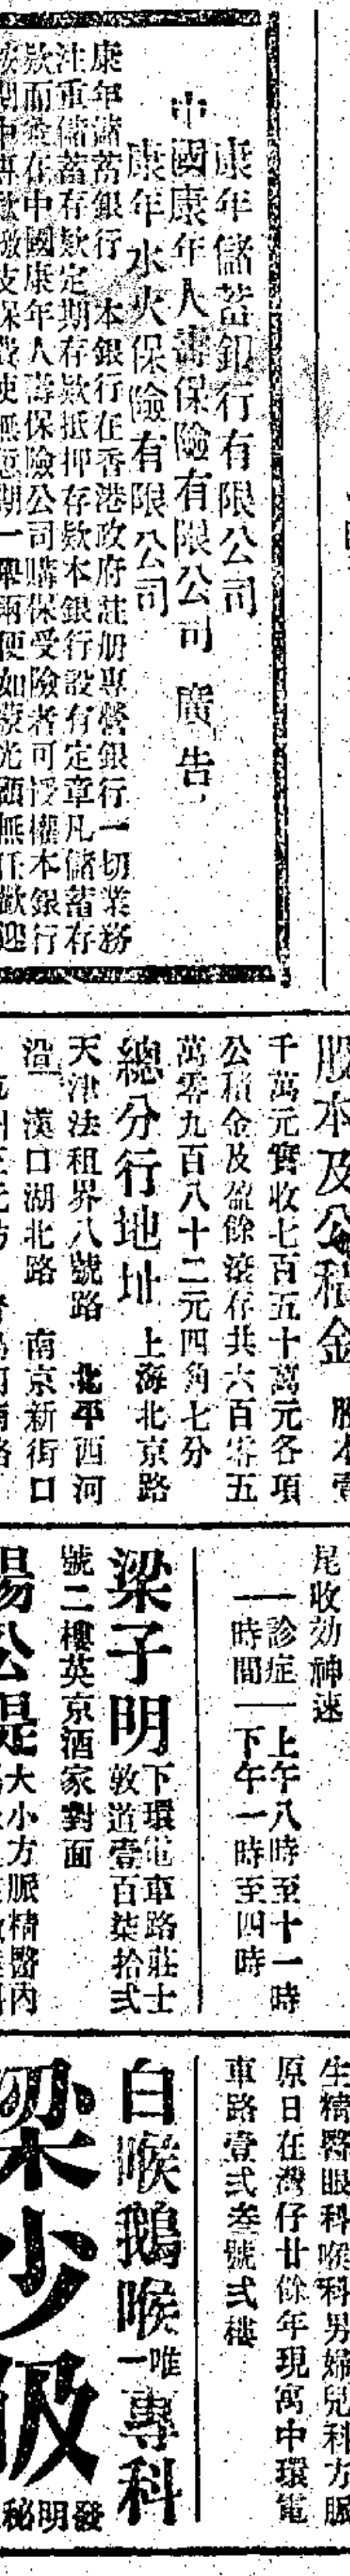 康年儲蓄銀行有限公司
中國康年人壽保險有限公司 廣告
康年水火保險有限公司
康年儲蓄銀行 本銀行在香港政府註册專營銀行一切業務
注重儲蓄存款定期存款抵押存款本銀行設有定章凡儲蓄存
款而並存中國康年人壽保險公司購保受險者可授權本銀行
股本及公積金 股本壹
千萬元實收七百五十萬元各項
公積金及盈餘滾存共六百零五
萬零九百八十二元四角七分
總分行地址 上海北京路
天津法租界八號路 北平西河
沿 漢口湖北路 南京新街口
尾收効神速
診症 上午八時至十一時
時間 下午一時至四時
梁子明 下環電車路莊士
敦道壹百柒拾弍
號二樓英京酒家對面
大小方脈精醫內
生精醫眼科喉科男婦兒科方脈
原日在灣仔廿餘年現寓中環電
車路壹弍叁號弍樓
白喉鵝喉唯一專科
梁少
發明秘